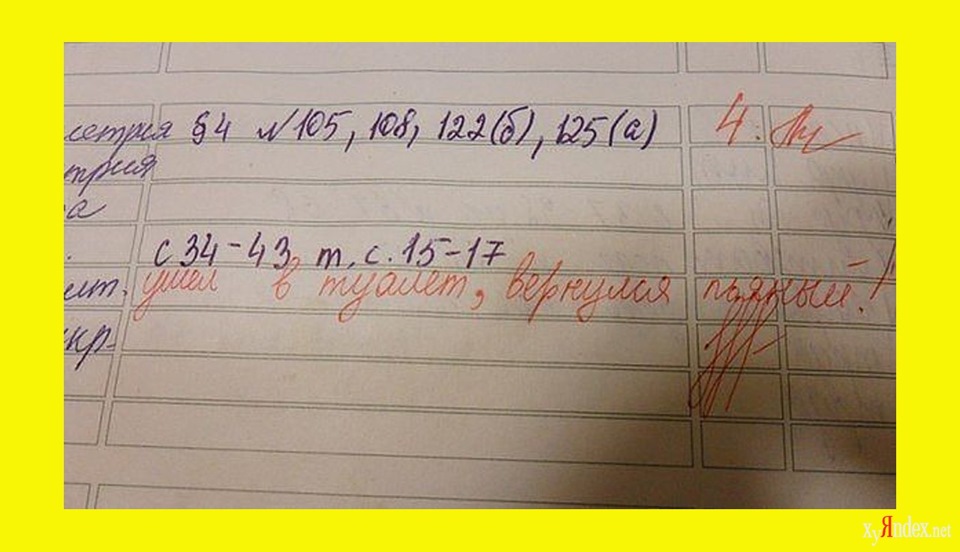 метрия §4 №105, 108, 122(б), 125(а) 4.
трия
ра
с 34-43, т. с. 15-17
ит. ушёл в туалет, вернулся пьяный!
кр-
ХуЯndex.net